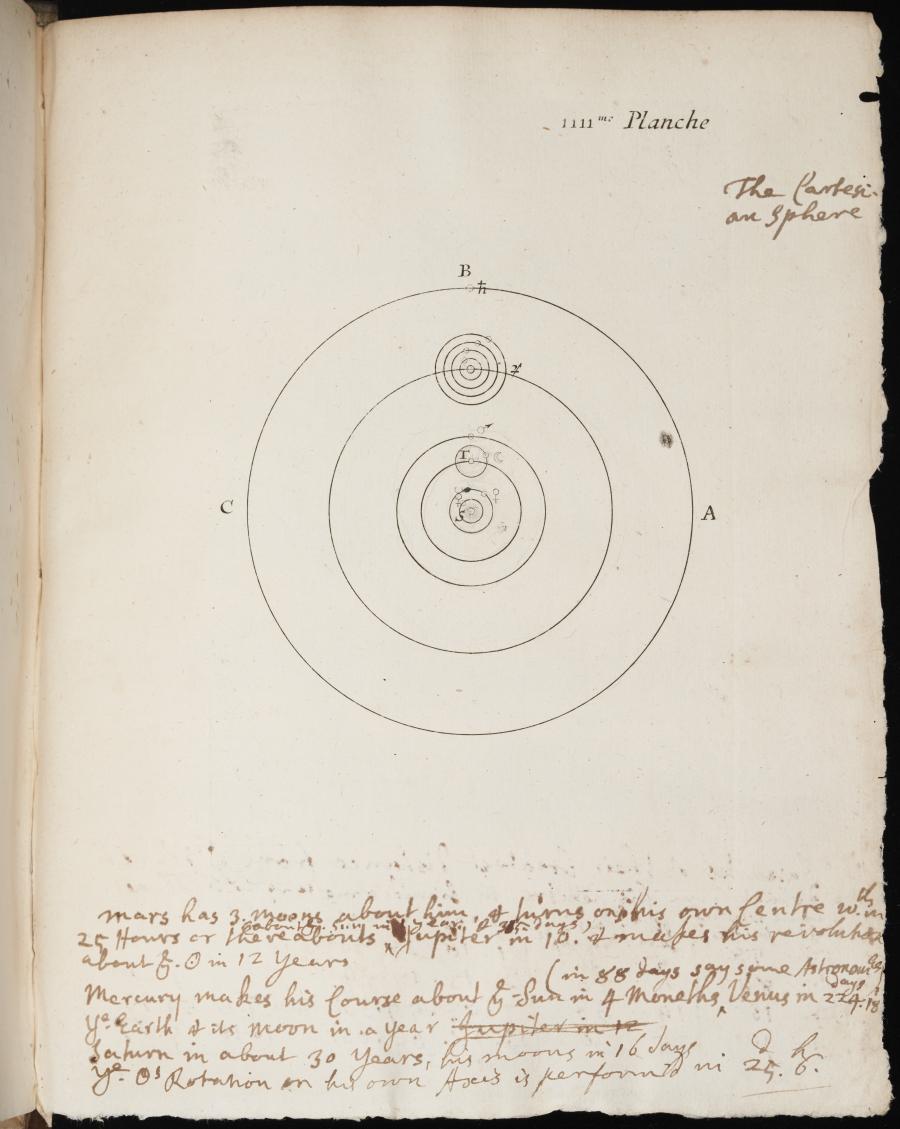 IIIIme Planche
The Cartesi-
an Sphere
B
♄
♃
♂
T
☾
☿ ♀
S
C
A
Mars has 3 moons about him, & turns on his own Centre wthin
about ye sun in years
25 Hours or thereabouts Jupiter in 10. & makes his revolution
about ye ☉ in 12 Years
(in 88 days say some Astronomers
Mercury makes his Course about ye Sun in 4 Moneths, Venus in 224 days 18
Ye Earth & its Moon in a Year Jupiter in 12
Saturn in about 30 Years, his moons in 16 days
Ye ☉s Rotation on his own Axis is perform'd in 25 d. 6 h.